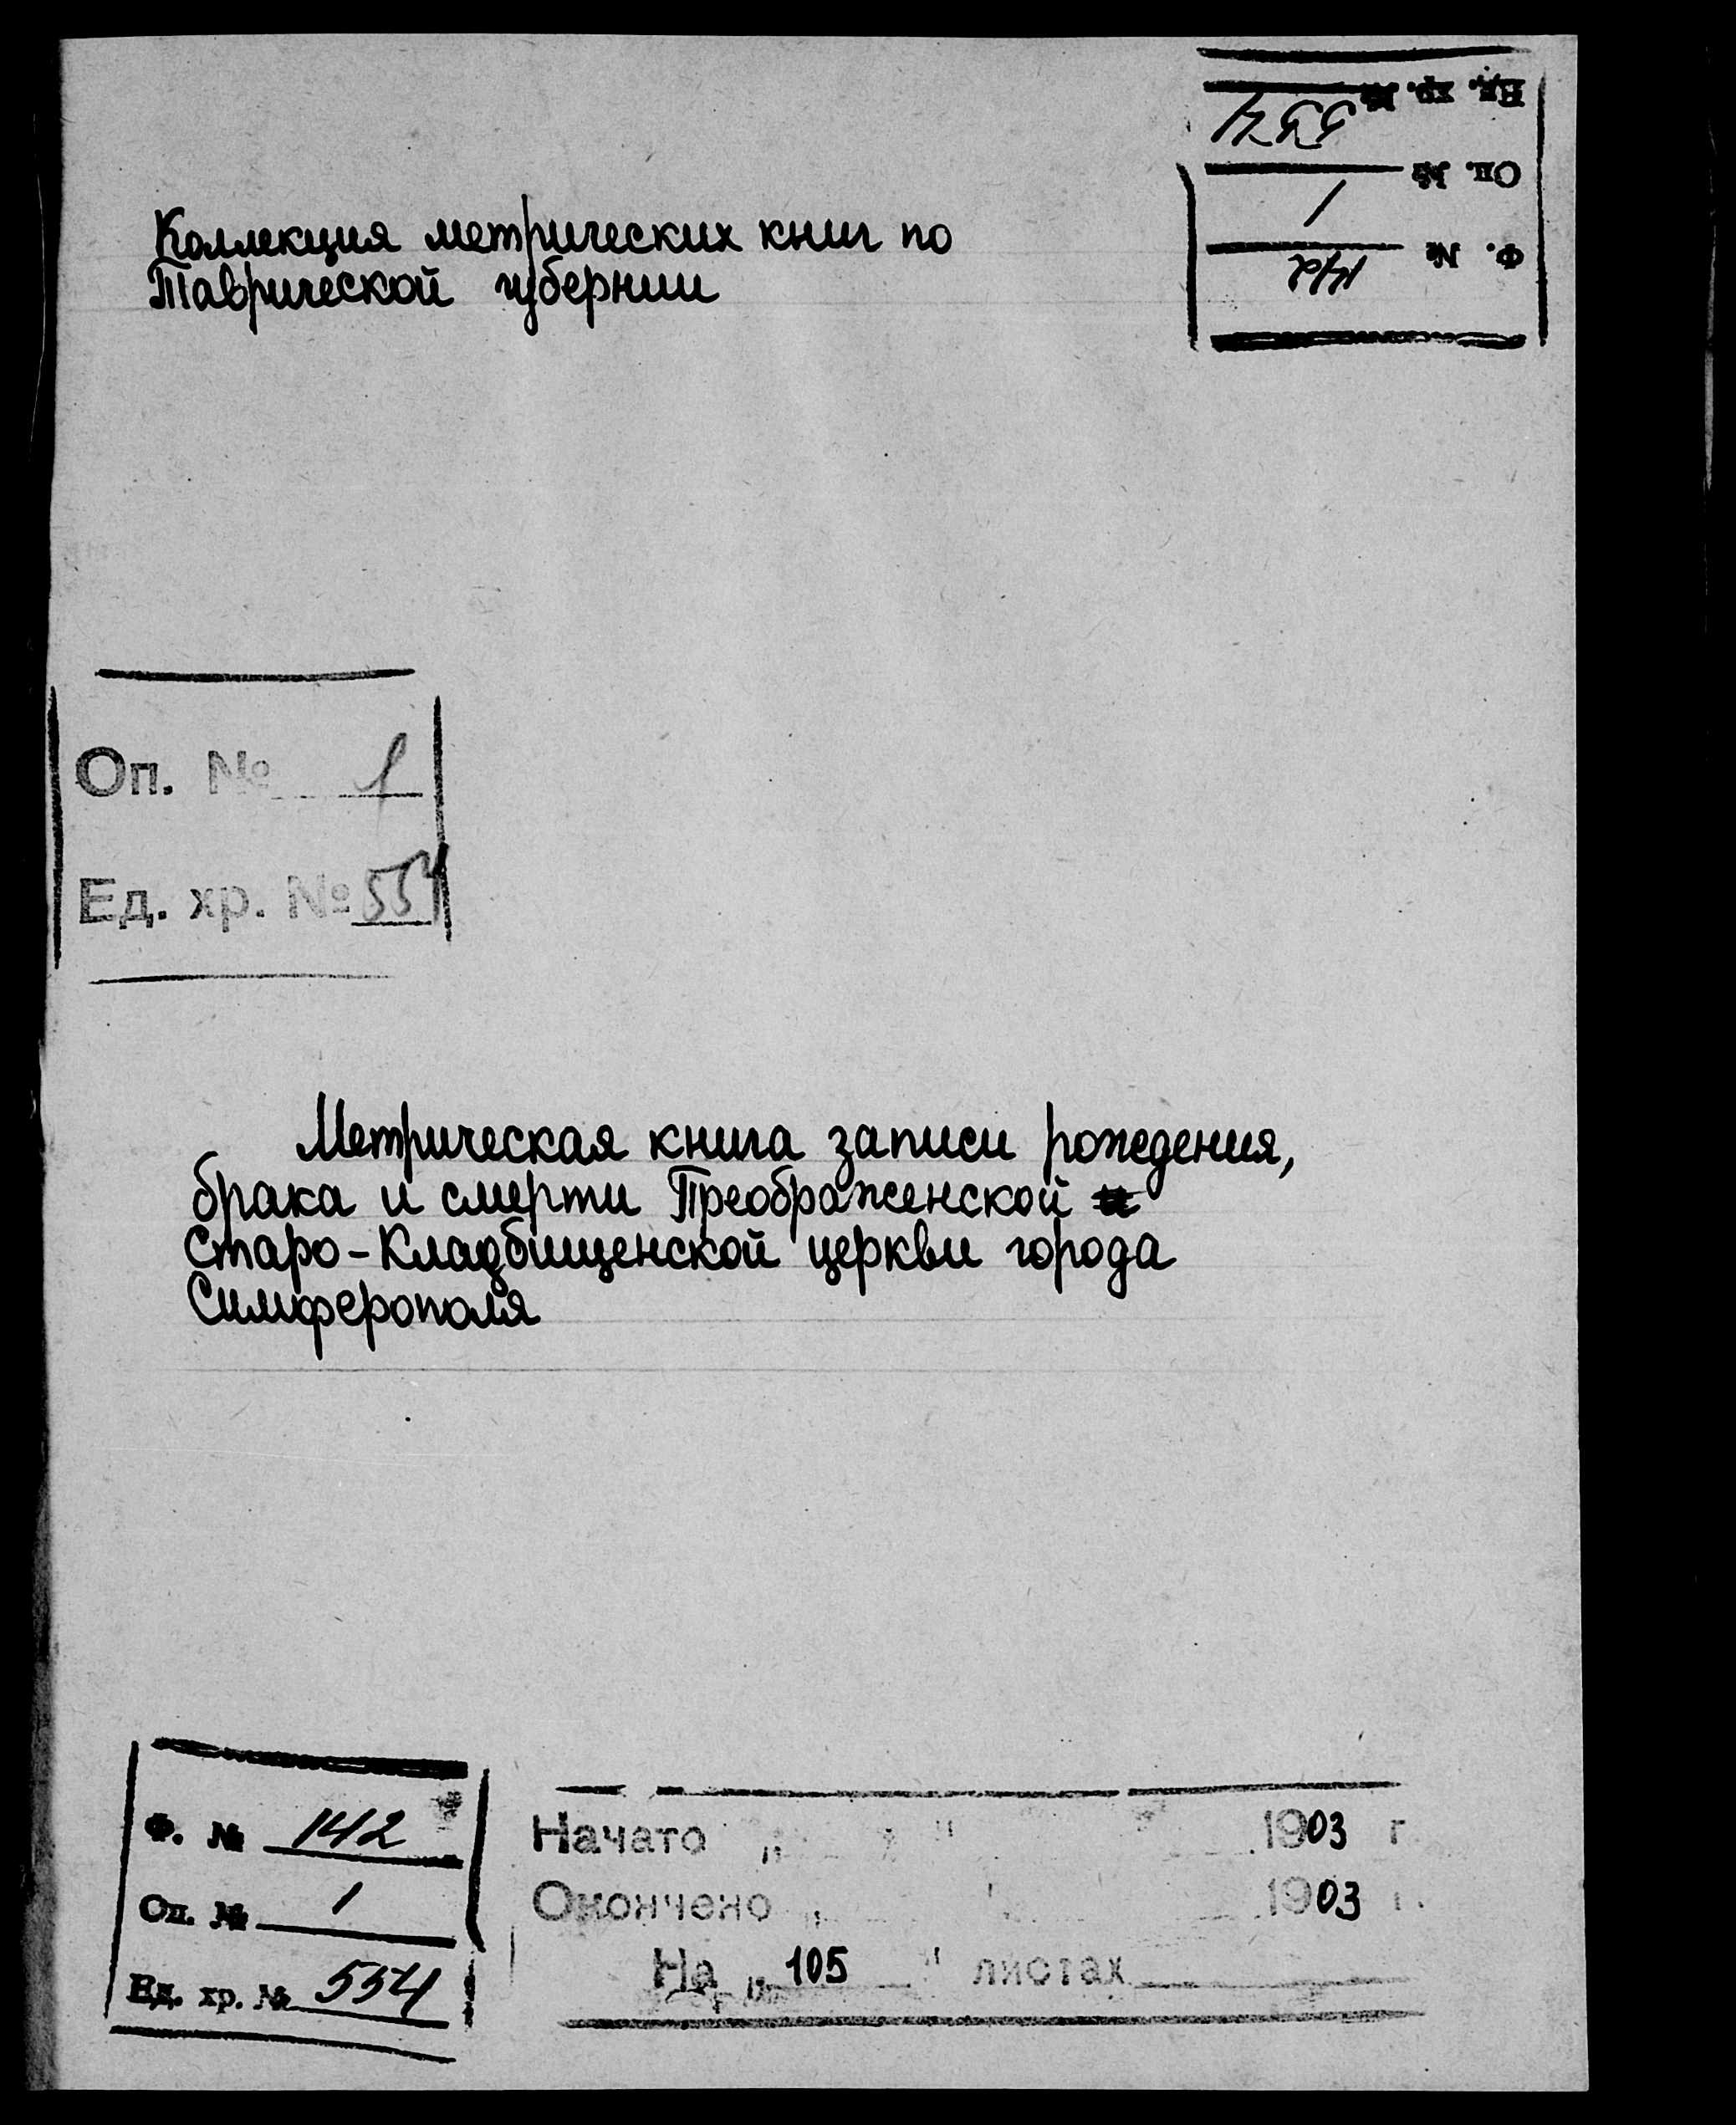 Ед. хр. № 554
Оп. № 1
Ф. № 142
Коллекция метрических книг по
Таврической губернии
Оп. № 1
Ед. хр. № 554
Метрическая книга записи рождения,
брака и смерти Преображенской и
Старо-Кладбищенской церкви города
Симферополя
Ф. № 142
Оп. № 1
Ед. хр. № 554
Начато „ " 1903 г.
Окончено „ " 1903 г.
На „ 105 " листах